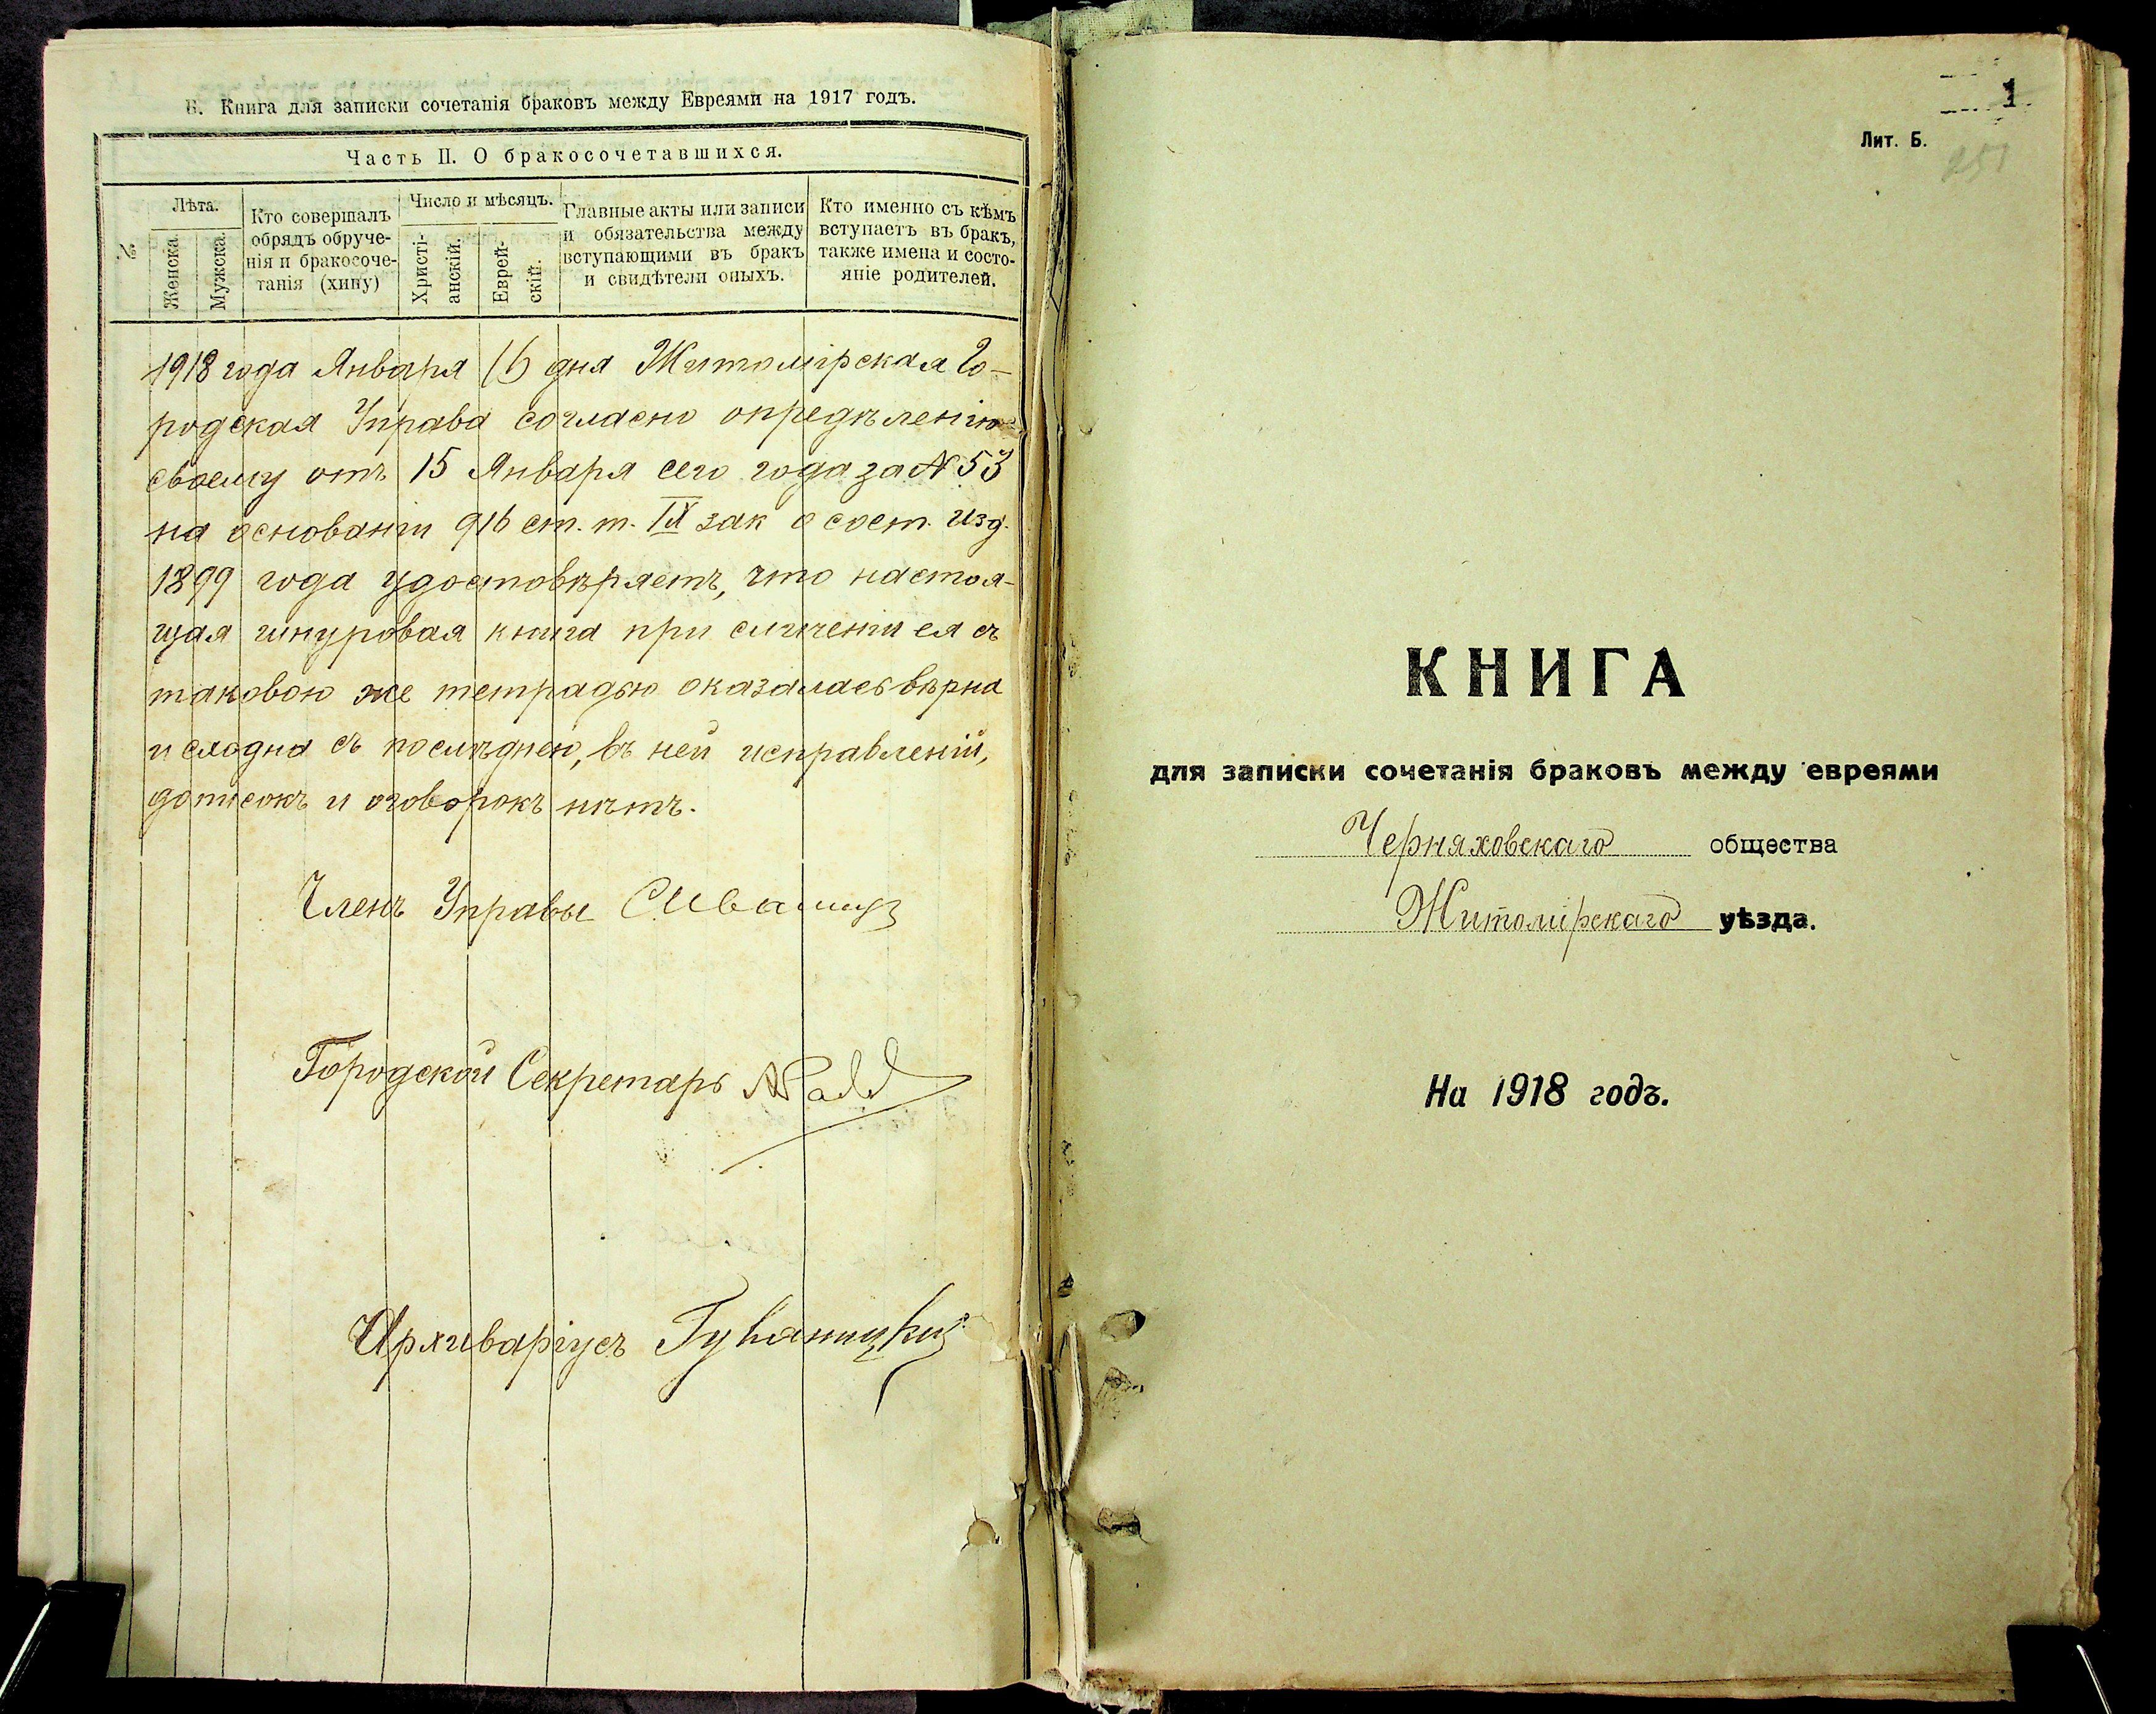 Б. Книга для записки сочетанія браковъ между Евреями на 1917 годъ.
Часть II. О бракосочетавшихся.
№
Лѣта.
Женска.
Мужска.
Кто совершалъ
обрядъ обруче-
нія и бракосоче-
танія (хипу)
Число и мѣсяцъ.
Христі-
анскій.
Еврей-
скій.
Главные акты или записи
и обязательства между
вступающими въ бракъ
и свидѣтели оныхъ.
Кто именно съ кѣмъ
вступаетъ въ бракъ,
также имена и состо-
яніе родителей.
1918 года Января 16 дня Житомірская Го-
родская Управа согласно опредѣленію
своему отъ 15 Января сего года за № 53
на основаніи 916 ст. т. IX зак о сост. изд.
1899 года удостовѣряетъ, что настоя-
щая шнуровая книга при сличеніи ея съ
таковою же тетрадью оказалась вѣрна
и сходна съ послѣднею, въ ней исправленій,
дописокъ и оговорокъ нѣтъ.
Членъ Управы
Городской Секретарь
Архиваріусъ
1
Лит. Б.
251
КНИГА
для записки сочетанія браковъ между евреями
Черняховскаго общества
Житомірскаго уѣзда.
На 1918 годъ.